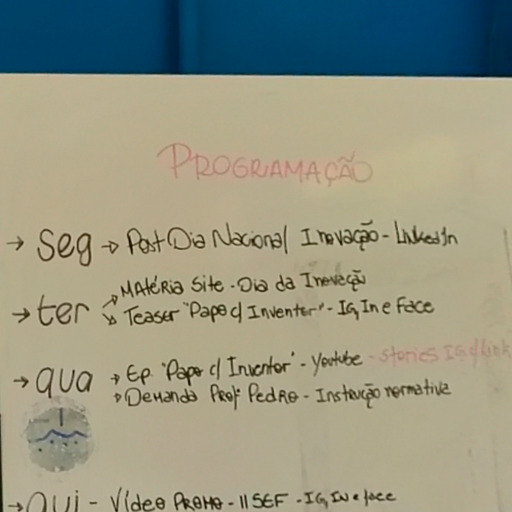 PROGRAMAÇÃO
→ seg → Post Dia Nacional Inovação - LinkedIn
→ ter → MATÉRIA Site - Dia da Inovação
→ Teaser "Papo c/ Inventor" - IG, In e Face
→ qua → Ep. "Papo c/ Inventor" - Youtube - Stories IG c/ link
→ Demanda Prof. Pedro - Instrução normativa
→ qui - Vídeo PROMO - II SEF - IG, IN e face